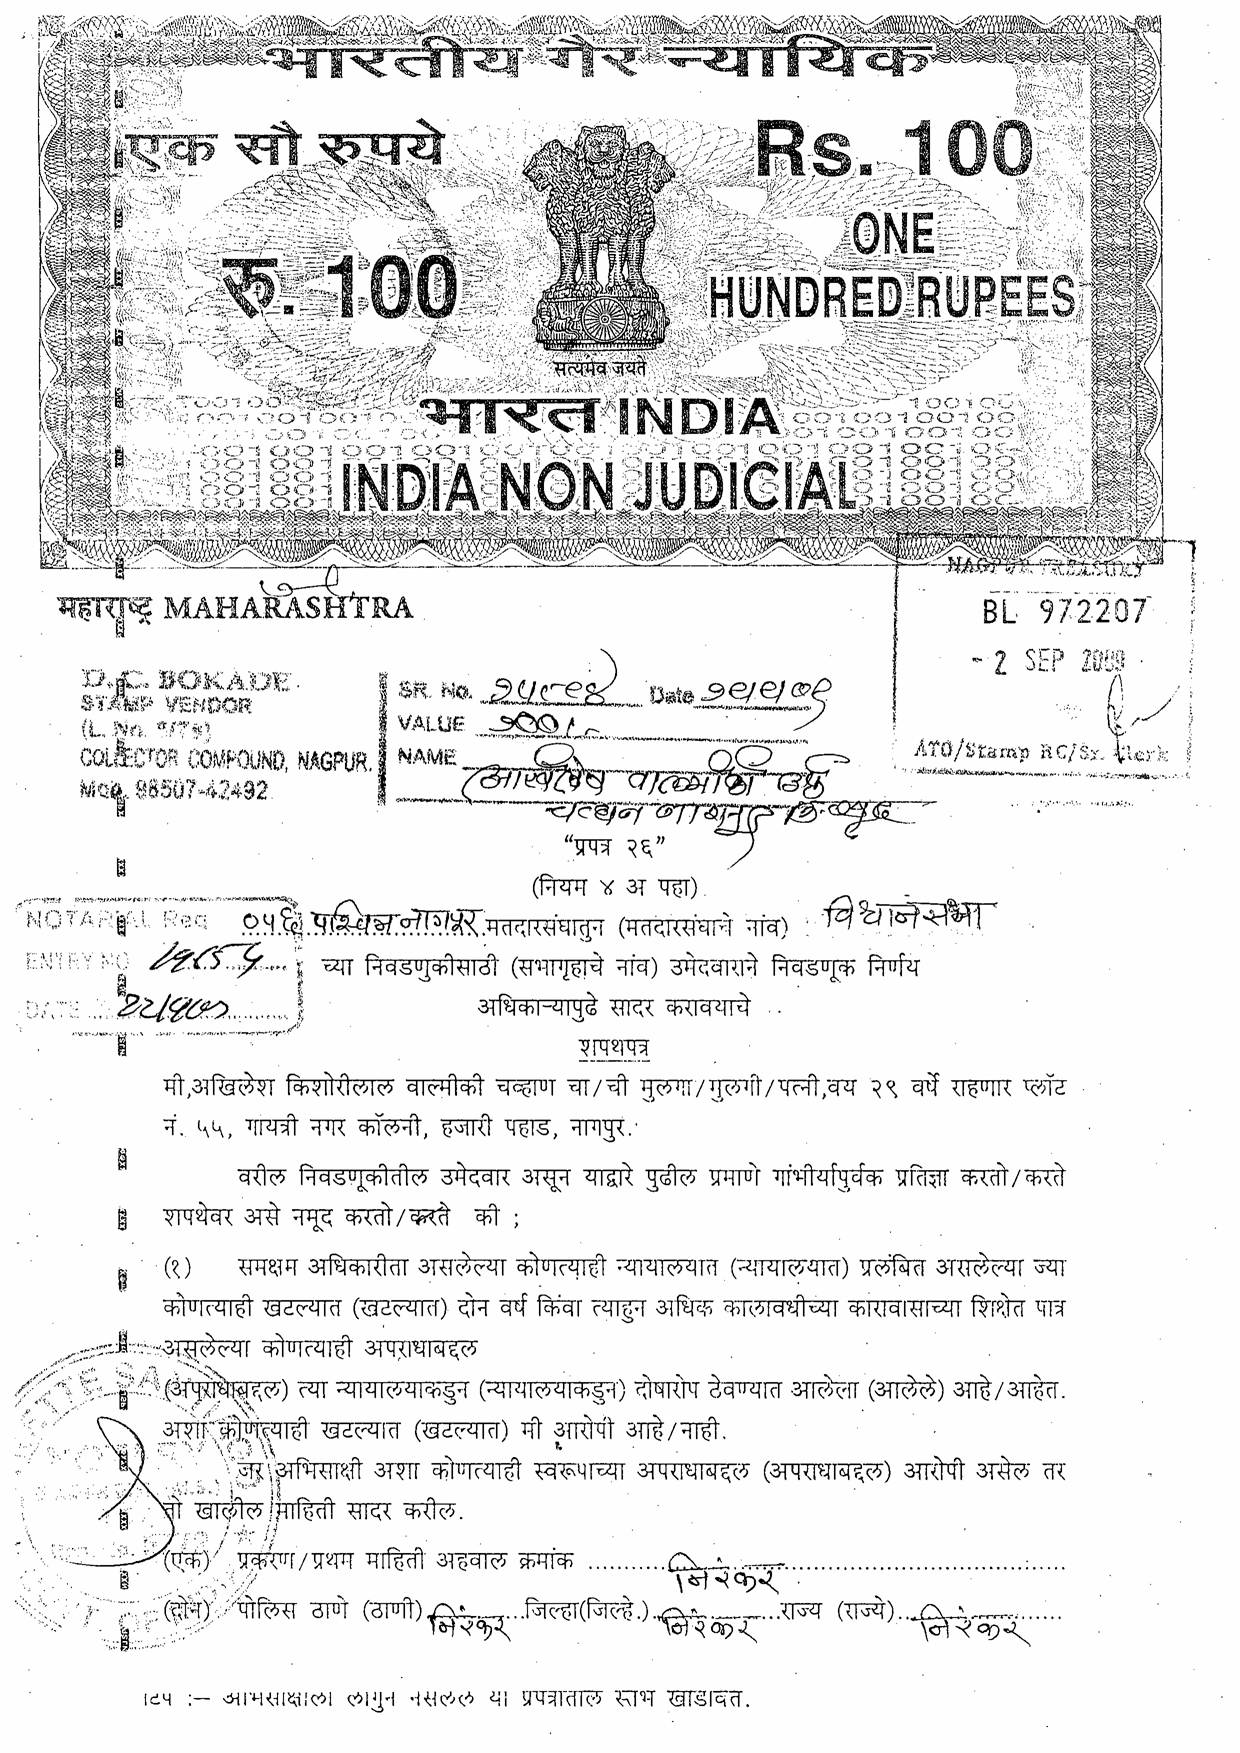 भारतीय गैर न्यायिक
एक सौ रुपये
Rs. 100
रु. 100
ONE
HUNDRED RUPEES
सत्यमेव जयते
भारत INDIA
INDIA NON JUDICIAL
महाराष्ट्र MAHARASHTRA
NAGPUR TREASURY
BL 972207
- 2 SEP 2009
ATO/Stamp RC/Sr. Clerk
D. C. BOKADE
STAMP VENDOR
(L. No.
COLLECTOR COMPOUND, NAGPUR.
Mob. 98507-42492
SR. No. Date
VALUE
NAME वाल्मीकी उर्फ
"प्रपत्र २६"
(नियम ४ अ पहा)
NOTARIAL Reg
ENTRY NO
DATE
०५६ पश्चिम नागपूर मतदारसंघातुन (मतदारसंघाचे नांव) विधानसभा
च्या निवडणुकीसाठी (सभागृहाचे नांव) उमेदवाराने निवडणूक निर्णय
अधिकाऱ्यापुढे सादर करावयाचे
शपथपत्र
मी,अखिलेश किशोरीलाल वाल्मीकी चव्हाण चा/ची मुलगा/गुलगी/पत्नी,वय २९ वर्षे राहणार प्लॉट
नं. ५५, गायत्री नगर कॉलनी, हजारी पहाड, नागपुर.
वरील निवडणूकीतील उमेदवार असून याद्वारे पुढील प्रमाणे गांभीर्यापुर्वक प्रतिज्ञा करतो/करते
शपथेवर असे नमूद करतो/करते की ;
(१) समक्षम अधिकारीता असलेल्या कोणत्याही न्यायालयात (न्यायालयात) प्रलंबित असलेल्या ज्या
कोणत्याही खटल्यात (खटल्यात) दोन वर्ष किंवा त्याहुन अधिक कालावधीच्या कारावासाच्या शिक्षेत पात्र
असलेल्या कोणत्याही अपराधाबद्दल
(अपराधाबद्दल) त्या न्यायालयाकडुन (न्यायालयाकडुन) दोषारोप ठेवण्यात आलेला (आलेले) आहे/आहेत.
अशा कोणत्याही खटल्यात (खटल्यात) मी आरोपी आहे/नाही.
जर अभिसाक्षी अशा कोणत्याही स्वरूपाच्या अपराधाबद्दल (अपराधाबद्दल) आरोपी असेल तर
तो खालील माहिती सादर करील.
(एक) प्रकरण/प्रथम माहिती अहवाल क्रमांक ..........निरंकर..........
(दोन) पोलिस ठाणे (ठाणी) निरंकर.....जिल्हा(जिल्हे.) निरंकर.....राज्य (राज्ये)..निरंकर.....
टिप :– अभिसाक्षीला लागुन नसलेले या प्रपत्रातील स्तंभ खोडावेत.